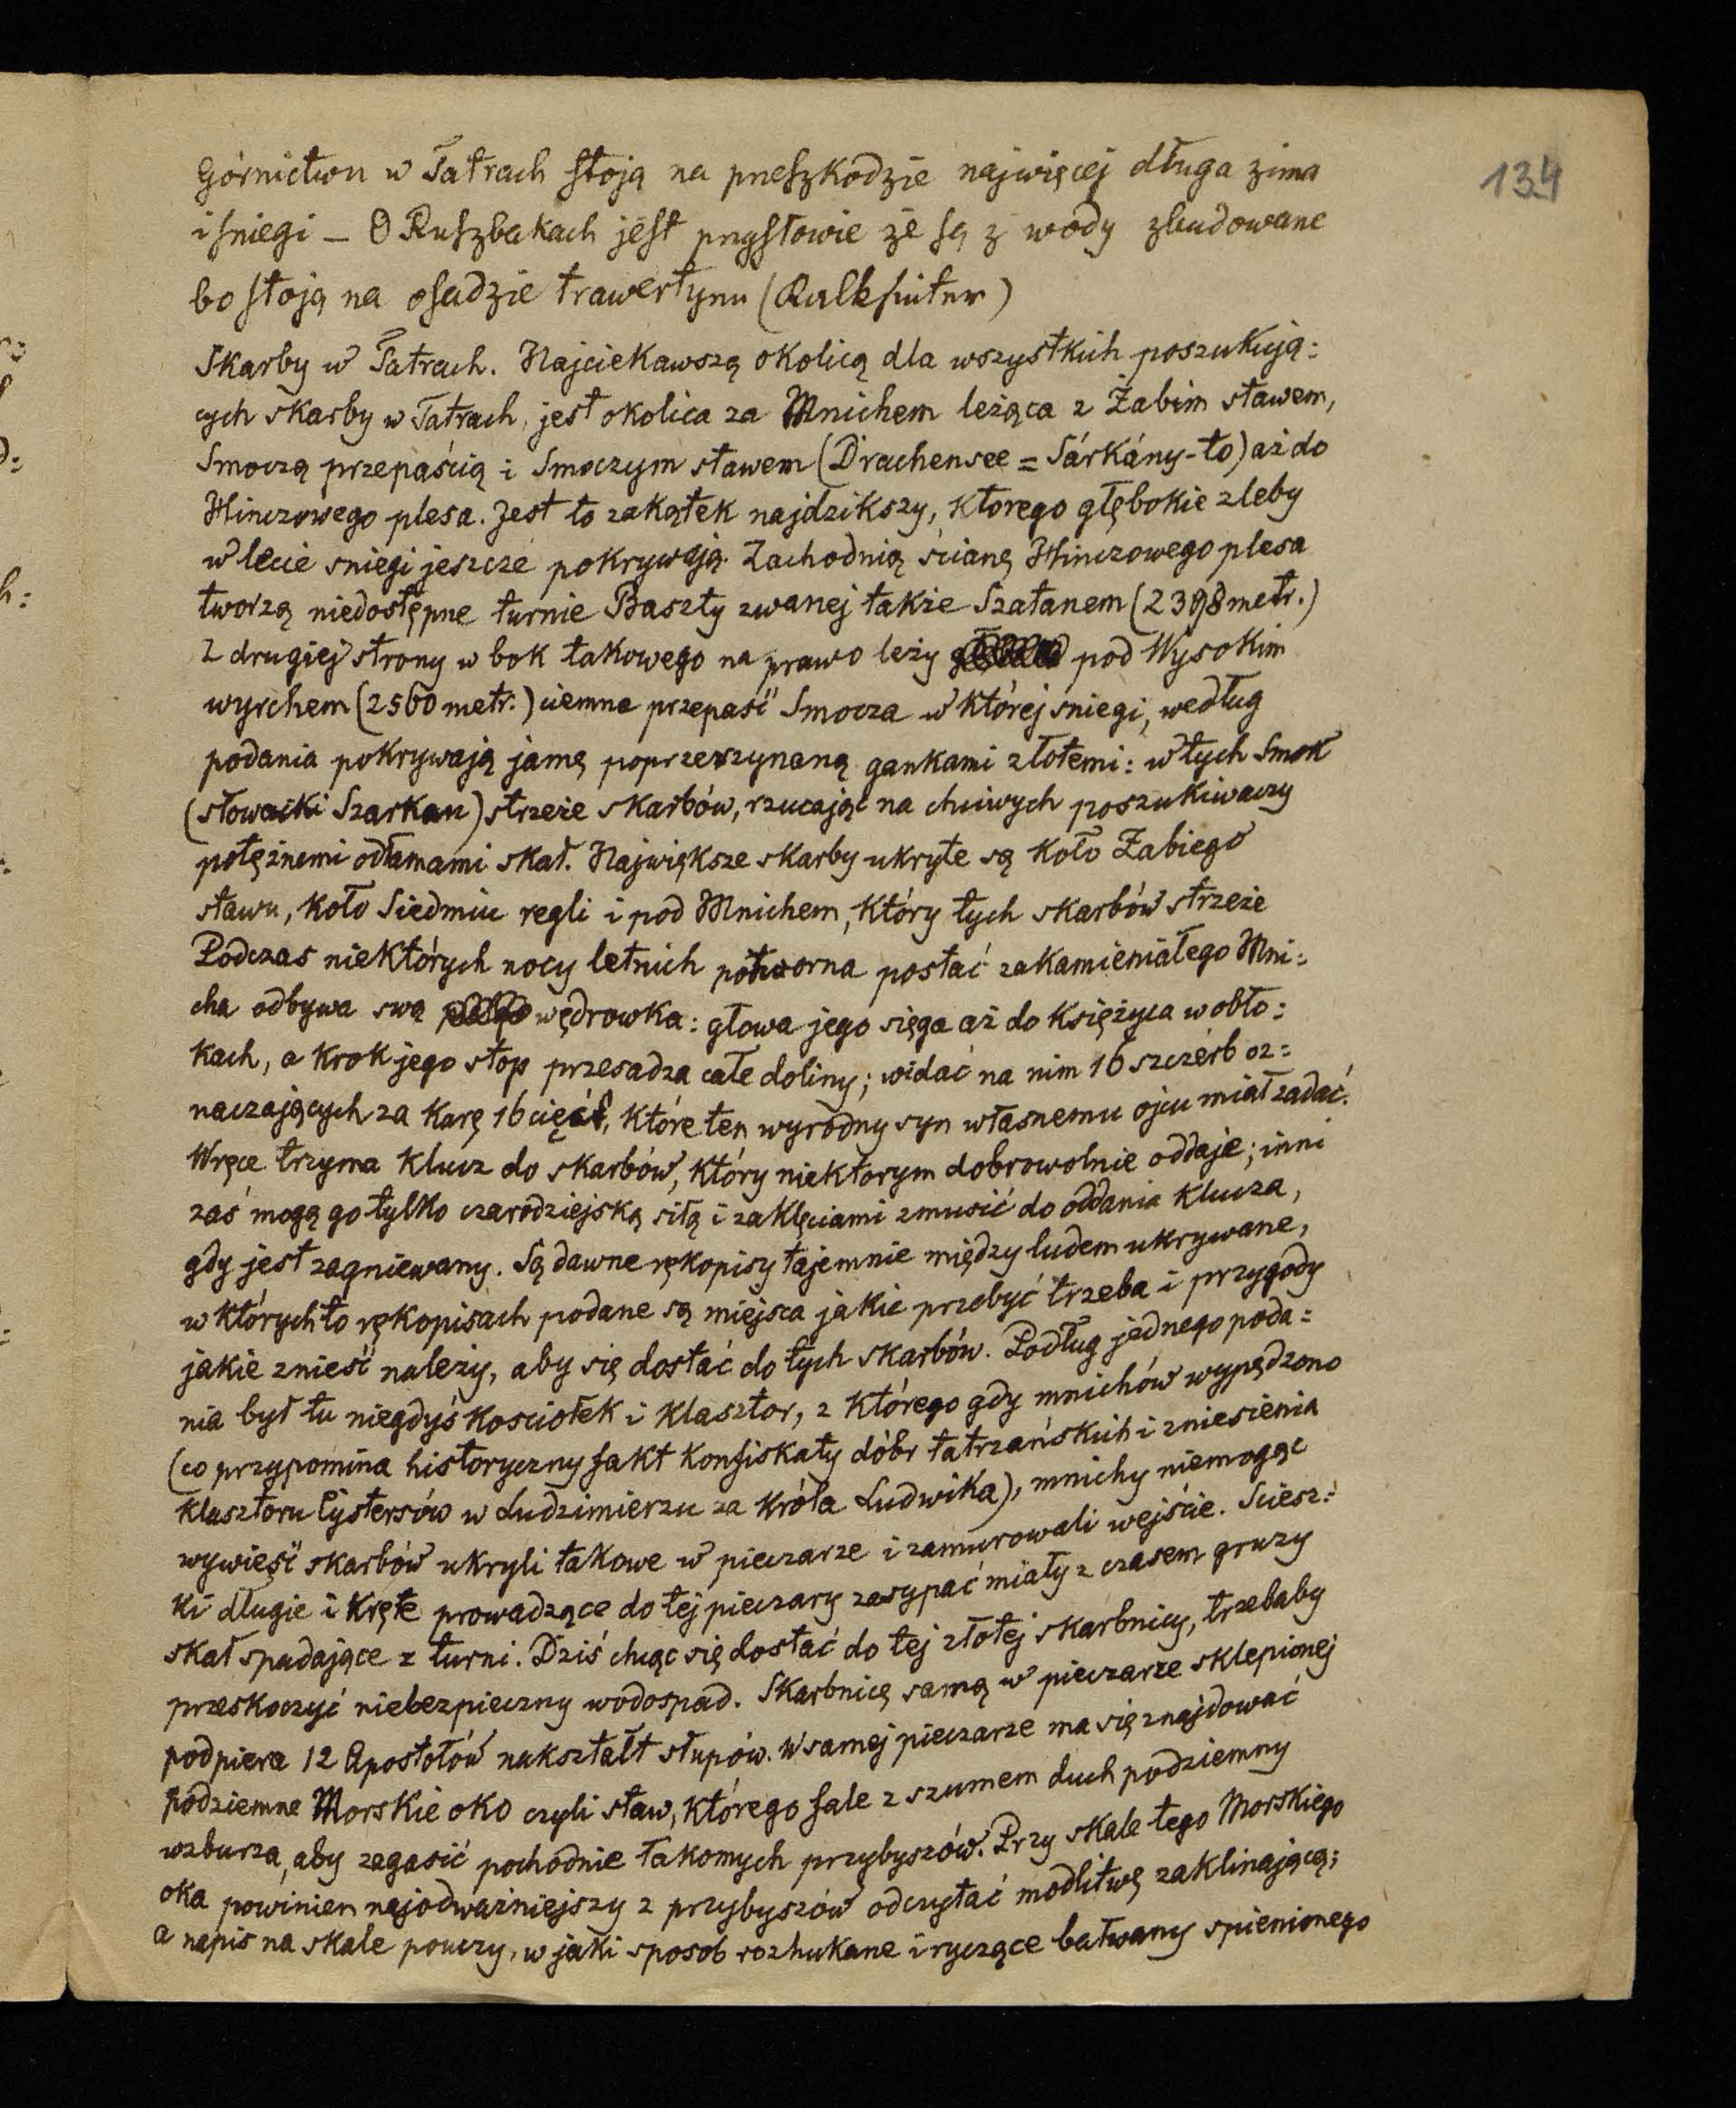 134
Górnictwu w Tatrach stoją na przeszkodzie najwięcej długa zima
i śniegi – O Ruszbakach jest przysłowie że są z wody zbudowane
bo stoją na osadzie trawertynu (Kalksinter)
Skarby w Tatrach. Najciekawszą okolicą dla wszystkich poszukują:
cych skarby w Tatrach, jest okolica za Mnichem leżąca z Żabim stawem,
Smoczą przepaścią i Smoczym stawem (Drachensee = Sárkány-to) aż do
Hinczowego plesa. Jest to zakątek najdzikszy, którego głębokie zleby
w lecie sniegi jeszcze pokrywają. Zachodnią ścianę Hinczowego plesa
tworzą niedostępne turnie Baszty zwanej także Szatanem (2398 metr.)
Z drugiej strony w bok takowego na prawo leży pod Wysokim
wyrchem (2560 metr.) ciemna przepaść Smocza w której śniegi, według
podania pokrywają jamę poprzerzynaną gankami złotemi: w tych Smok
(słowacki Szarkan) strzeże skarbów, rzucając na chciwych poszukiwaczy
potężnemi odłamami skał. Największe skarby ukryte są koło Żabiego
stawu, koło Siedmiu regli i pod Mnichem, który tych skarbów strzeże
Podczas niektórych nocy letnich potworna postać zakamieniałego Mni:
cha odbywa swą wędrowka: głowa jego sięga aż do księżyca w obło:
kach, a krok jego stop przesadza całe doliny; widać na nim 16 szczerb oz:
naczających za karę 16 cięć, które ten wyrodny syn własnemu ojcu miał zadać.
W ręce trzyma klucz do skarbów, który niektorym dobrowolnie oddaje; inni
zaś mogą go tylko czarodziejską siłą i zaklęciami zmusić do oddania klucza,
gdy jest zagniewany. Są dawne rękopisy tajemnie między ludem ukrywane,
w których to rękopisach podane są miejsca jakie przebyć trzeba i przygody
jakie znieść należy, aby się dostać do tych skarbów. Podług jednego poda:
nia był tu niegdyś kosciołek i klasztor, z którego gdy mnichów wypędzono
(co przypomina historyczny fakt konfiskaty dóbr tatrzańskich i zniesienia
klasztoru Cystersów w Ludzimierzu za króla Ludwika), mnichy niemogąc
wywieść skarbów ukryli takowe w pieczarze i zamurowali wejście. Sciesz:
ki długie i kręte prowadzące do tej pieczary zasypać miały z czasem gruzy
skał spadające z turni. Dziś chcąc się dostać do tej złotej skarbnicy, trzebaby
przeskoczyć niebezpieczny wodospad. Skarbnicę samą w pieczarze sklepionej
podpiera 12 Apostołów nakształt słupów. W samej pieczarze ma się znajdować
podziemne Morskie oko czyli staw, którego fale z szumem duch podziemny
wzburza, aby zagasić pochodnie łakomych przybyszów. Przy skale tego Morskiego
oka powinien najodważniejszy z przybyszów odczytać modlitwę zaklinającą;
a napis na skale pouczy, w jaki sposob rozhukane i ryczące bałwany spienionego